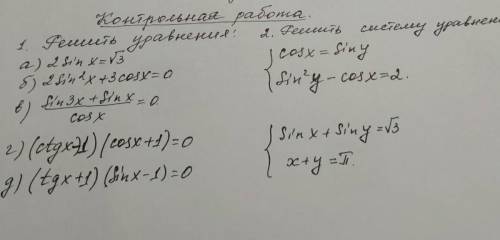 Контрольная работа.
1. Решить уравнения:
а) 2 sin x = √3
б) 2 sin²x + 3 cos x = 0
в) (sin 3x + sin x) / cos x = 0
г) (ctg x - 1) (cos x + 1) = 0
д) (tg x + 1) (sin x - 1) = 0
2. Решить систему уравнени
{ cos x = sin y
sin²y - cos x = 2.
{ sin x + sin y = √3
x + y = π.